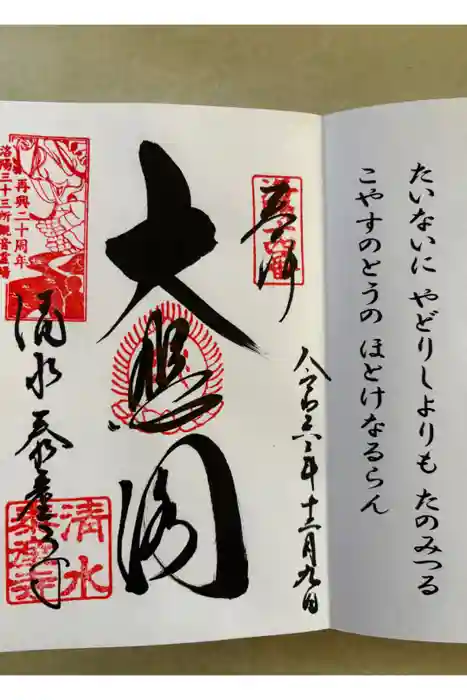 たいないに やどりしよりも たのみつる
こやすのとうの ほとけなるらん
奉拝
令和六年十二月九日
大悲閣
再興二十周年
洛陽三十三所観音霊場
清水 泰産寺
清水
泰産寺